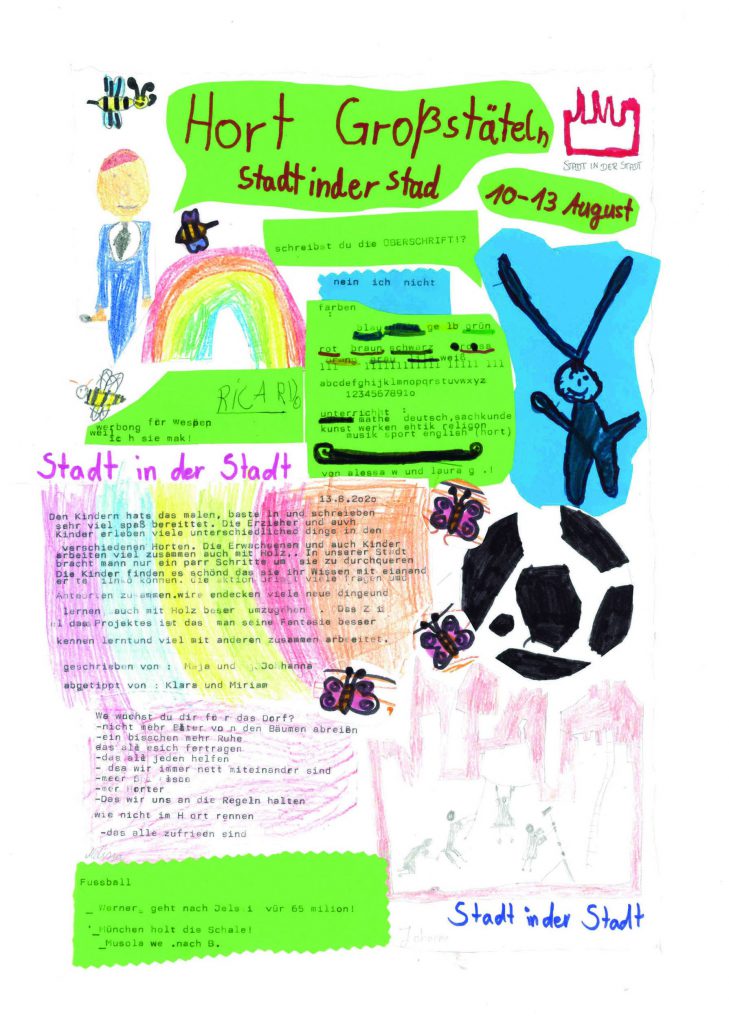 Hort Großstäteln
Stadt in der Stad
STADT IN DER STADT
10-13 August
schreibst du die ÜBERSCHRIFT!?
nein ich nicht
farben
:
blau gelb grün
rot braun schwarz
weiß
abcdefghijklmnopqrstuvwxyz
12345678910
unterricht :
mathe deutsch,sachkunde
kunst werken ehtik religon
musik sport english (hort)
von alessa w und laura g .!
RICARDO
werbong för Wespen
weil
ich sie mak!
Stadt in der Stadt
13.8.2020
Den Kindern hats das malen, basteln und schreieben
sehr viel spaß bereittet. Die Erzieher und auvh
Kinder erleben viele unterschiedliched dinge in den
verschiedenen Horten. Die Erwachsenen und auch Kinder
arbeiten viel zusammen auch mit Holz,. In unserer Stadt
bracht mann nur ein parr Schritte um sie zu durchqueren
Die Kinder finden es schönd das sie ihr Wissen mit eianand
können. die aktion viele fragen und
Antworten zusammen.wire endecken viele neue dingeund
lernen auch mit Holz beser umzugehen . Das Z i
el das Projektes ist das man seine Fantasie besser
kennen lerntund viel mit anderen zusammen arbeitet.
geschrieben von : Maja und Johanna
abgetippt von : Klara und Miriam
Wa wüchst du dir för das Dorf?
-nicht mehr Blter von den Bäumen abreißen
-ein bisschen mehr Ruhe
das alle sich fertragen
-das alle jeden helfen
- das wir immer nett miteinander sind
-meer
-mer Horter
-Das wir uns an die Regeln halten
wie nicht im Hort rennen
-das alle zufrieden sind
Fussball
_ Werner_ geht nach vür 65 milion!
München holt die Schale!
_Musola we .nach B.
Stadt in der Stadt